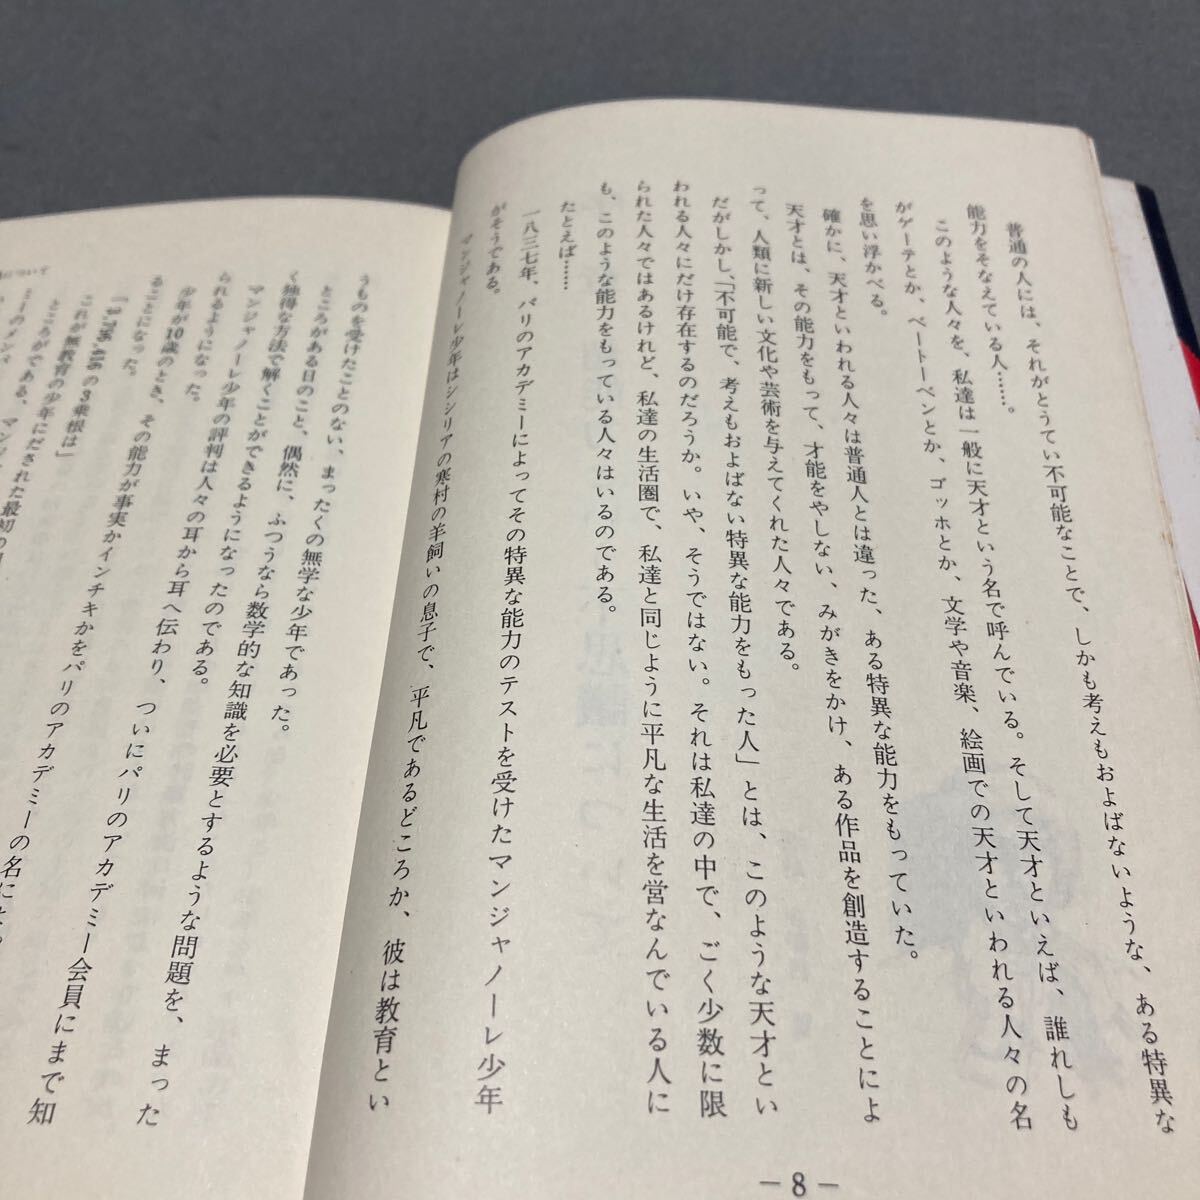 普通の人には、それがとうてい不可能なことで、しかも考えもおよばないような、ある特異な
能力をそなえている人……。
このような人々を、私達は一般に天才という名で呼んでいる。そして天才といえば、誰れしも
がゲーテとか、ベートーベンとか、ゴッホとか、文学や音楽、絵画での天才といわれる人々の名
を思い浮かべる。
確かに、天才といわれる人々は普通人とは違った、ある特異な能力をもっていた。
天才とは、その能力をもって、才能をやしない、みがきをかけ、ある作品を創造することによ
って、人類に新しい文化や芸術を与えてくれた人々である。
だがしかし、「不可能で、考えもおよばない特異な能力をもった人」とは、このような天才とい
われる人々にだけ存在するのだろうか。いや、そうではない。それは私達の中で、ごく少数に限
られた人々ではあるけれど、私達の生活圏で、私達と同じように平凡な生活を営なんでいる人に
も、このような能力をもっている人々はいるのである。
たとえば……
一八三七年、パリのアカデミーによってその特異な能力のテストを受けたマンジャノーレ少年
がそうである。
マンジャノーレ少年はシシリアの寒村の羊飼いの息子で、平凡であるどころか、彼は教育とい
―8―
うものを受けたことのない、まったくの無学な少年であった。
ところがある日のこと、偶然に、ふつうなら数学的な知識を必要とするような問題を、まった
く独得な方法で解くことができるようになったのである。
マンジャノーレ少年の評判は人々の耳から耳へ伝わり、ついにパリのアカデミー会員にまで知
られるようになった。
少年が10歳のとき、その能力が事実かインチキかをパリのアカデミーの名に
ることになった。
「3,796,416の3乗根は」
これが無教育の少年にだされた最初の
ところがである、マンジ
ミーのメンバ
について